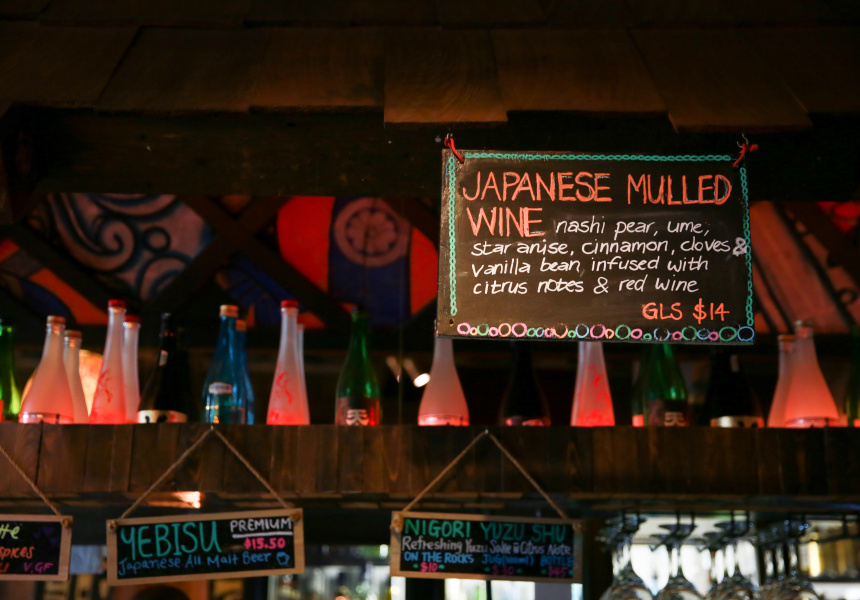 JAPANESE MULLED
WINE nashi pear, ume,
star anise, cinnamon, cloves &
vanilla bean infused with
citrus notes & red wine
GLS $14
YEBISU PREMIUM
$15.50
Japanese All Malt Beer
NIGORI YUZU SHU
Refreshing Yuzu Sake Citrus Note
ON THE ROCKS JUG BOTTLE
$10
spices
V.GF